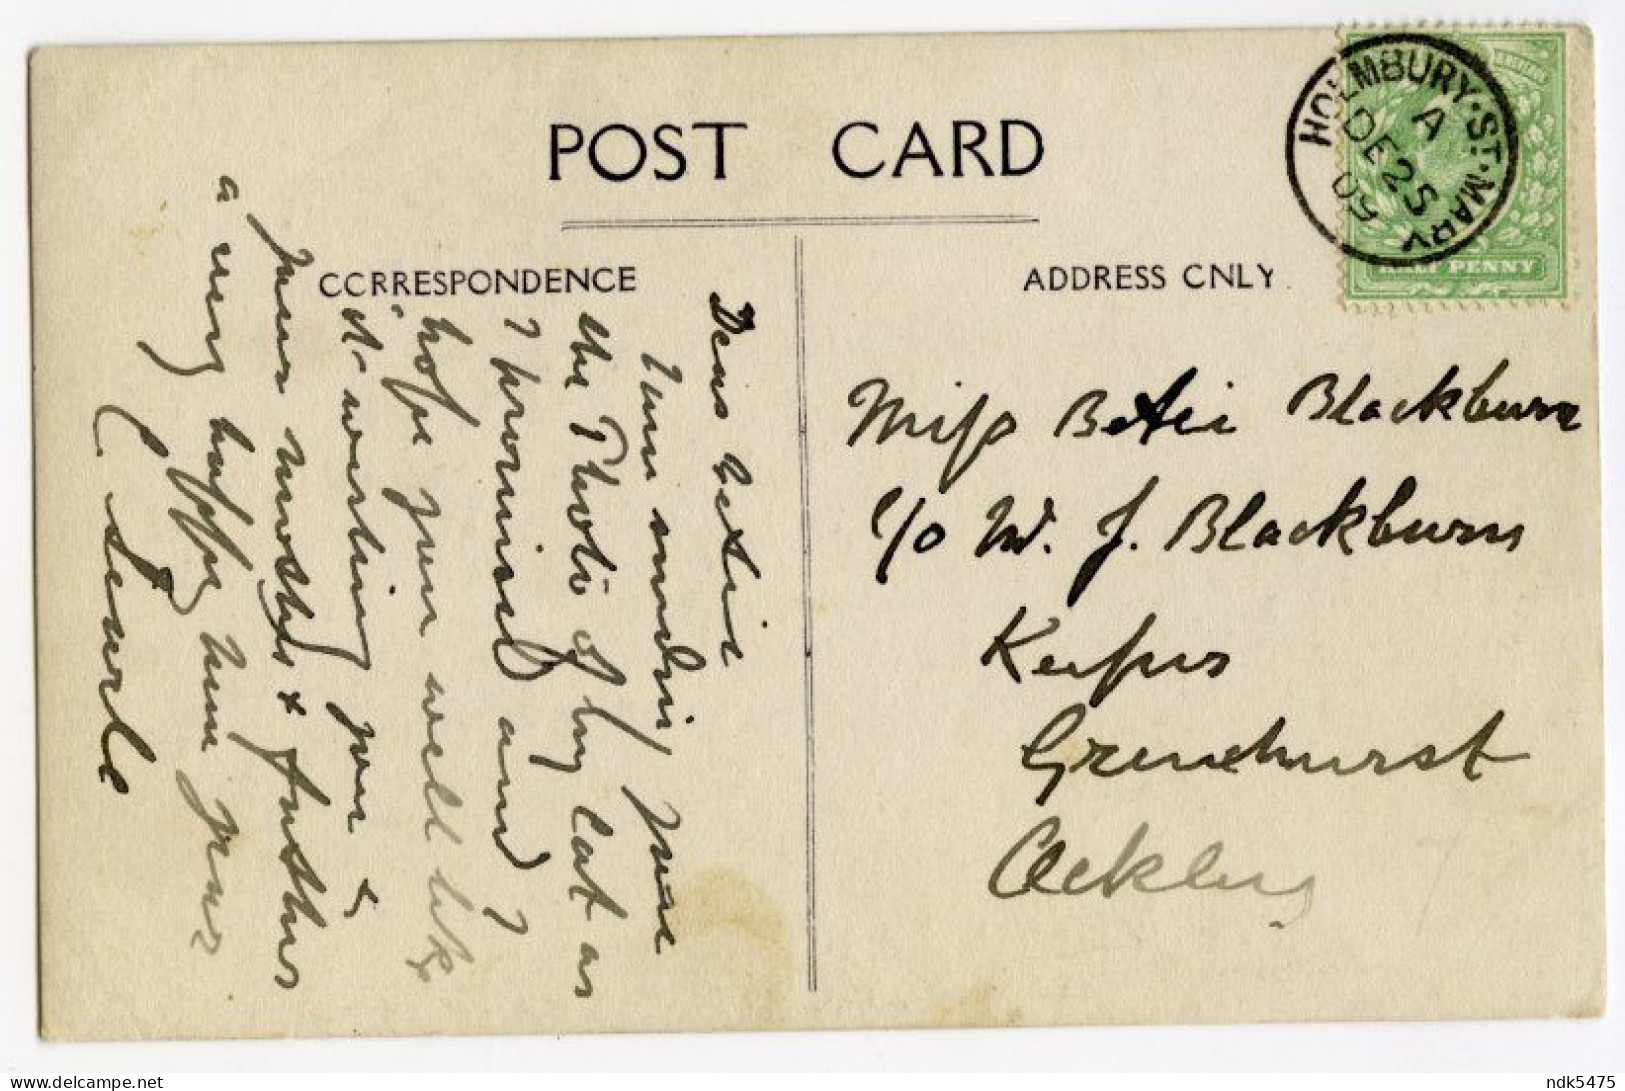 POST CARD
CORRESPONDENCE
ADDRESS ONLY
HOLMBURY·ST·MARY
A
DE 25
09
HALF PENNY
Dear Betie
I am sending you
the Photo of my Cat as
I promised and I
hope you will like
it wishing you &
your mother & further
a very happy new year
C Searle
Miss Betie Blackburn
c/o W. J. Blackburn
Keepers
Grenehurst
Ockley
delcampe.net
ndk5475